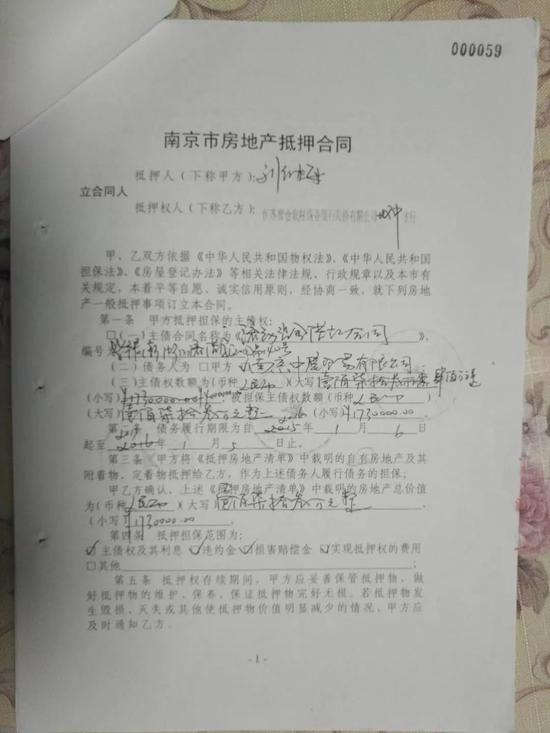 000059
南京市房地产抵押合同
抵押人（下称甲方）：
立合同人
抵押权人（下称乙方）：
甲、乙双方依据《中华人民共和国物权法》、《中华人民共和国
担保法》、《房屋登记办法》等相关法律法规、行政规章以及本市有
关规定，本着平等自愿、诚实信用原则，经协商一致，就下列房地
产一般抵押事项订立本合同。
第一条 甲方抵押担保的主债权：
□（一）主债合同名称为《流动资金借款合同》，
编号
（二）债务人为 □甲方 有限公司
（三）主债权数额为（币种人民币）（大写
（小写） 被担保主债权数额（币种人民币）
（大写）壹佰柒拾叁万元整（小写）¥1730000.00
第二条 债务履行期限为自 2015 年 1 月 6 日
起至 2016 年 1 月 5 日止。
第三条 甲方将《抵押房地产清单》中载明的自有房地产及其
附着物、定着物抵押给乙方，作为上述债务人履行债务的担保；
甲乙方确认，上述《抵押房地产清单》中载明的房地产总价值
为（币种人民币）（大写）壹佰柒拾叁万元整
（小写）¥1730000.00
第四条 抵押担保范围为：
☑主债权及其利息 ☑违约金 ☑损害赔偿金 ☑实现抵押权的费用
□其他
第五条 抵押权存续期间，甲方应妥善保管抵押物，做
好抵押物的维护、保养，保证抵押物完好无损。若抵押物发
生毁损、灭失或其他使抵押物价值明显减少的情况，甲方应
及时通知乙方。
- 1 -